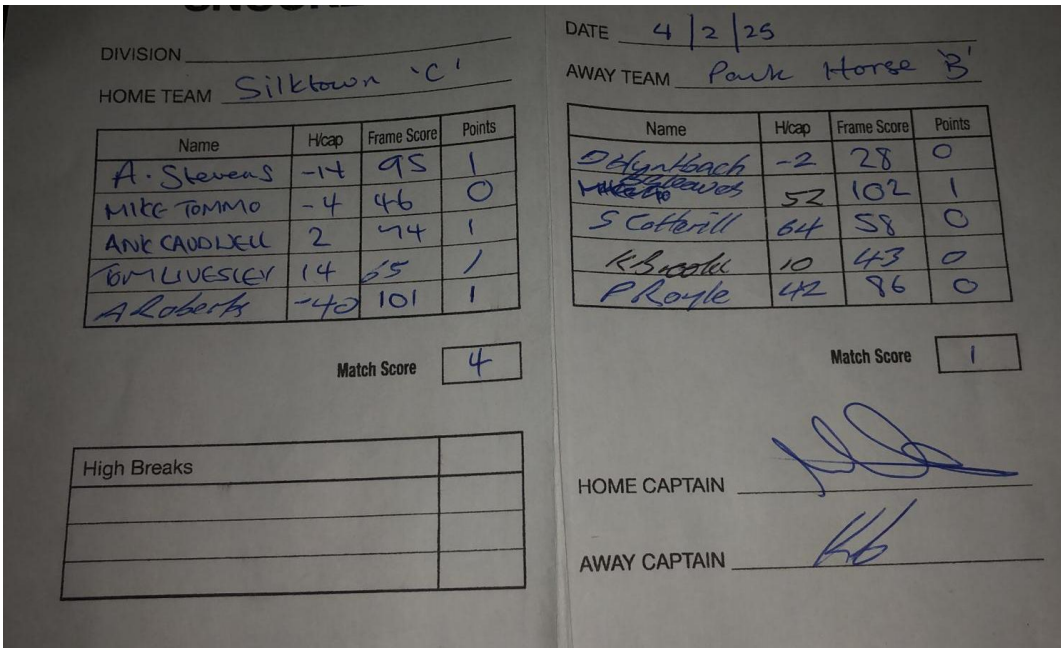 DIVISION
HOME TEAM Silktown 'C'
Name H/cap Frame Score Points
A. Stevens -14 95 1
MIKE TOMMO -4 46 0
CAUDWELL 2 74 1
TOM LIVESLEY 14 65 1
A Roberts -40 101 1
Match Score 4
High Breaks
DATE 4/2/25
AWAY TEAM Pack Horse 'B'
Name H/cap Frame Score Points
-2 28 0
52 102 1
S Cotterill 64 58 0
K Brookl 10 43 0
P Royle 42 86 0
Match Score 1
HOME CAPTAIN
AWAY CAPTAIN